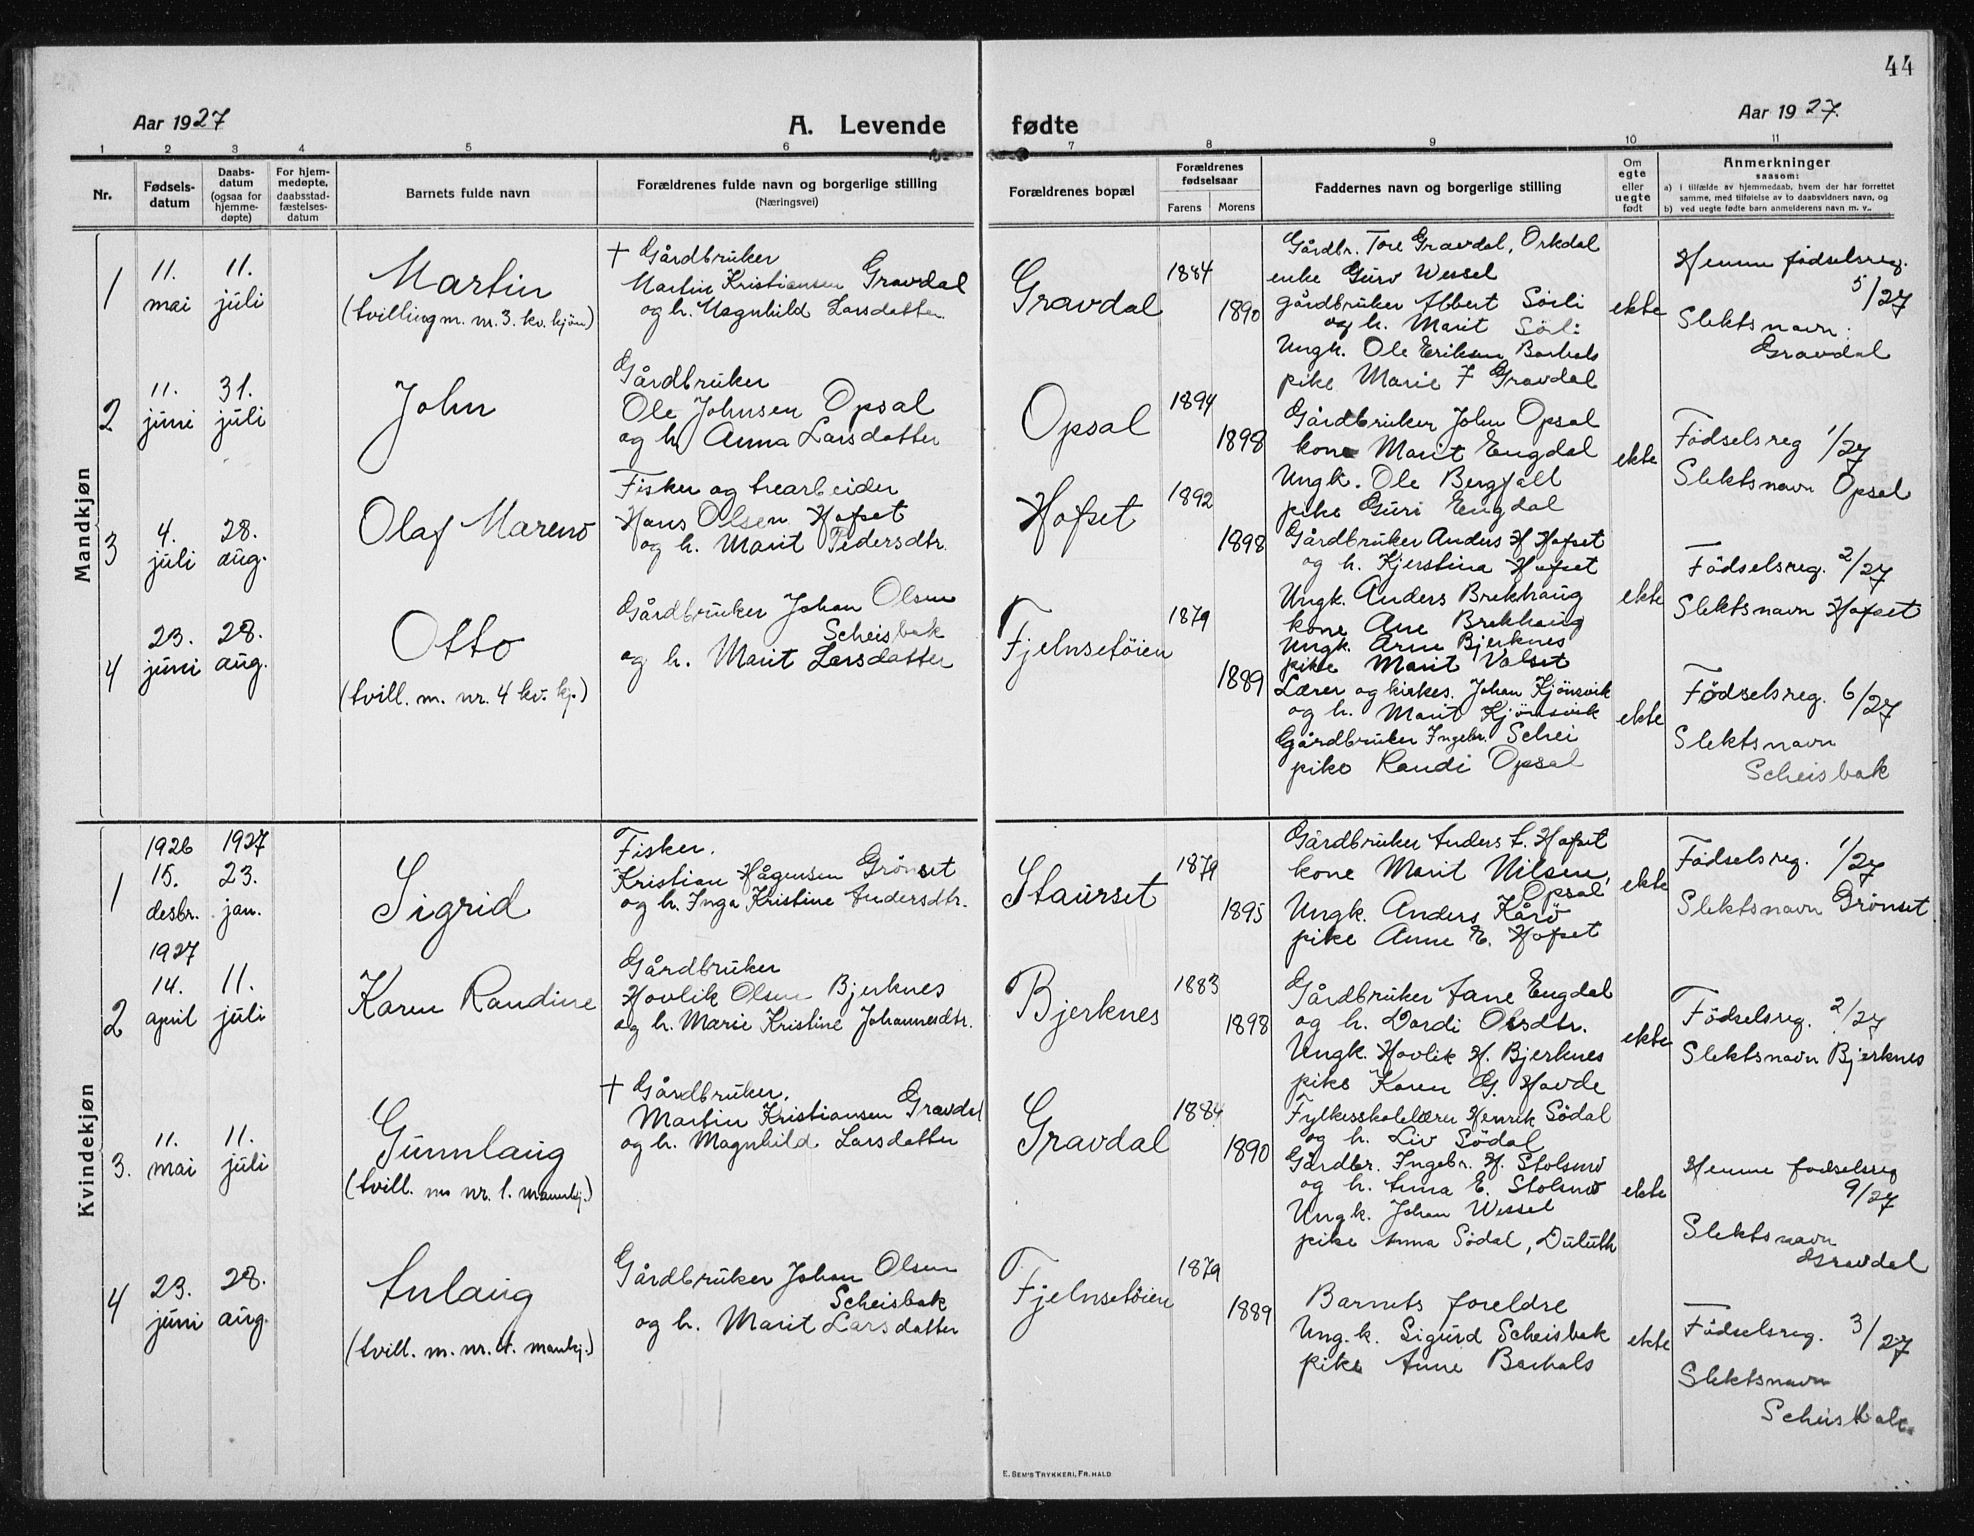 44
Aar 1927
A. Levende fødte
Aar 1927.
1 2 3 4 5 6 7 8 9 10 11
Nr.
Fødsels-
datum
Daabs-
datum
(ogsaa for
hjemme-
døpte)
For hjem-
medøpte,
daabsstad-
fæstelses-
datum
Barnets fulde navn
Forældrenes fulde navn og borgerlige stilling
(Næringsvei)
Forældrenes bopæl
Forældrenes
fødselsaar
Farens Morens
Faddernes navn og borgerlige stilling
Om
egte
eller
uegte
født
Anmerkninger
saasom:
a) i tilfælde av hjemmedaab, hvem der har forrettet
samme, med tilføielse av to daabsvidners navn, og
b) ved uegte fødte barn anmelderens navn m. v.
Mandkjøn
1
11.
mai
11.
juli
Martin
(tvilling m. nr. 3. kv. kjøn)
† Gårdbruker
Martin Kristiansen Gravdal
og h. Magnhild Larsdatter
Gravdal
1884
1890
Gårdbr. Tore Gravdal, Orkdal
enke Guro Wessel
gårdbruker Albert Sørli
og h. Marit Sørli
Ungk. Ole Eriksen Barhals
pike Marie J Gravdal
ekte
Hemne fødselsreg.
5/27
Slektsnavn:
Gravdal
2
11.
juni
31.
juli
John
Gårdbruker
Ole Johnsen Opsal
og h. Anna Larsdatter
Opsal
1894
1898
Gårdbruker John Opsal
kone Marit Engdal
Ungk. Ole Bergfall
pike Guri Engdal
ekte
Fødselsreg 1/27
Slektsnavn Opsal
3
4.
juli
28.
aug.
Olaf Mareno
Fisker og trearbeider
Hans Olsen Hofset
og h. Marit Pedersdtr.
Hofset
1892
1898
Gårdbruker Anders H Hofset
og h. Kjerstina Hofset
Ungk. Anders Brekhaug
kone Ane Brekhaug
Ungk. Arne Bjerknes
pike Marit Valset
ekte
Fødselsreg. 2/27
Slektsnavn Hofset
4
23.
juni
28.
aug.
Otto
(tvill. m. nr. 4 kv. kj.)
Gårdbruker Johan Olsen
Scheisbak
og h. Marit Larsdatter
Fjelnsetøien
1879
1889
Lærer og kirkes. Johan Kjønsvik
og h. Marit Kjønsvik
Gårdbruker Ingebr. Schei
pike Randi Opsal
ekte
Fødselsreg. 6/27
Slektsnavn
Scheisbak
Kvindekjøn
1
1926
15.
desbr.
1927
23.
jan.
Sigrid
Fisker.
Kristian Hågensen Grønset
og h. Inga Kristine Andersdtr.
Staurset
1879
1895
Gårdbruker Anders L. Hofset
kone Marit Nilsen,
Opsal
Ungk. Anders Kårø
pike Anne E. Hofset
ekte
Fødselsreg. 1/27
Slektsnavn Grønset
2
1927
14.
april
11.
juli
Karen Randine
Gårdbruker
Hovlik Olsen Bjerknes
og h. Marie Kristine Johannesdtr.
Bjerknes
1883
1898
Gårdbruker Aane Engdal
og h. Dordi Olsdtr.
Ungk. Hovlik H. Bjerknes
pike Karen G. Havde
ekte
Fødselsreg. 2/27
Slektsnavn Bjerknes
3.
11.
mai
11.
juli
Gunnlaug
(tvill. m. nr. 1. mannkj.)
† Gårdbruker.
Martin Kristiansen Gravdal
og h. Magnhild Larsdatter
Gravdal
1884
1890
Fylkesskolelærer Henrik Sødal
og h. Liv Sødal
Gårdbr. Ingebr. H. Stolsmo
og h. Anna E. Stolsmo
Ungk. Johan Wessel
pike Anna Sødal, Duluth
ekte
Hemne fødselsreg
9/27
Slektsnavn
Gravdal
4
23.
juni
28.
aug.
Aslaug
(tvill. m. nr. 4. mankj.)
Gårdbruker Johan Olsen
Scheisbak
og h. Marit Larsdatter
Fjelnsetøien
1879
1889
Barnets foreldre
Ung.k. Sigurd Scheisbak
pike Anne Barhals
ekte
Fødselsreg. 3/27
Slektsnavn
Scheisbak
E. SEM'S TRYKKERI, FR. HALD